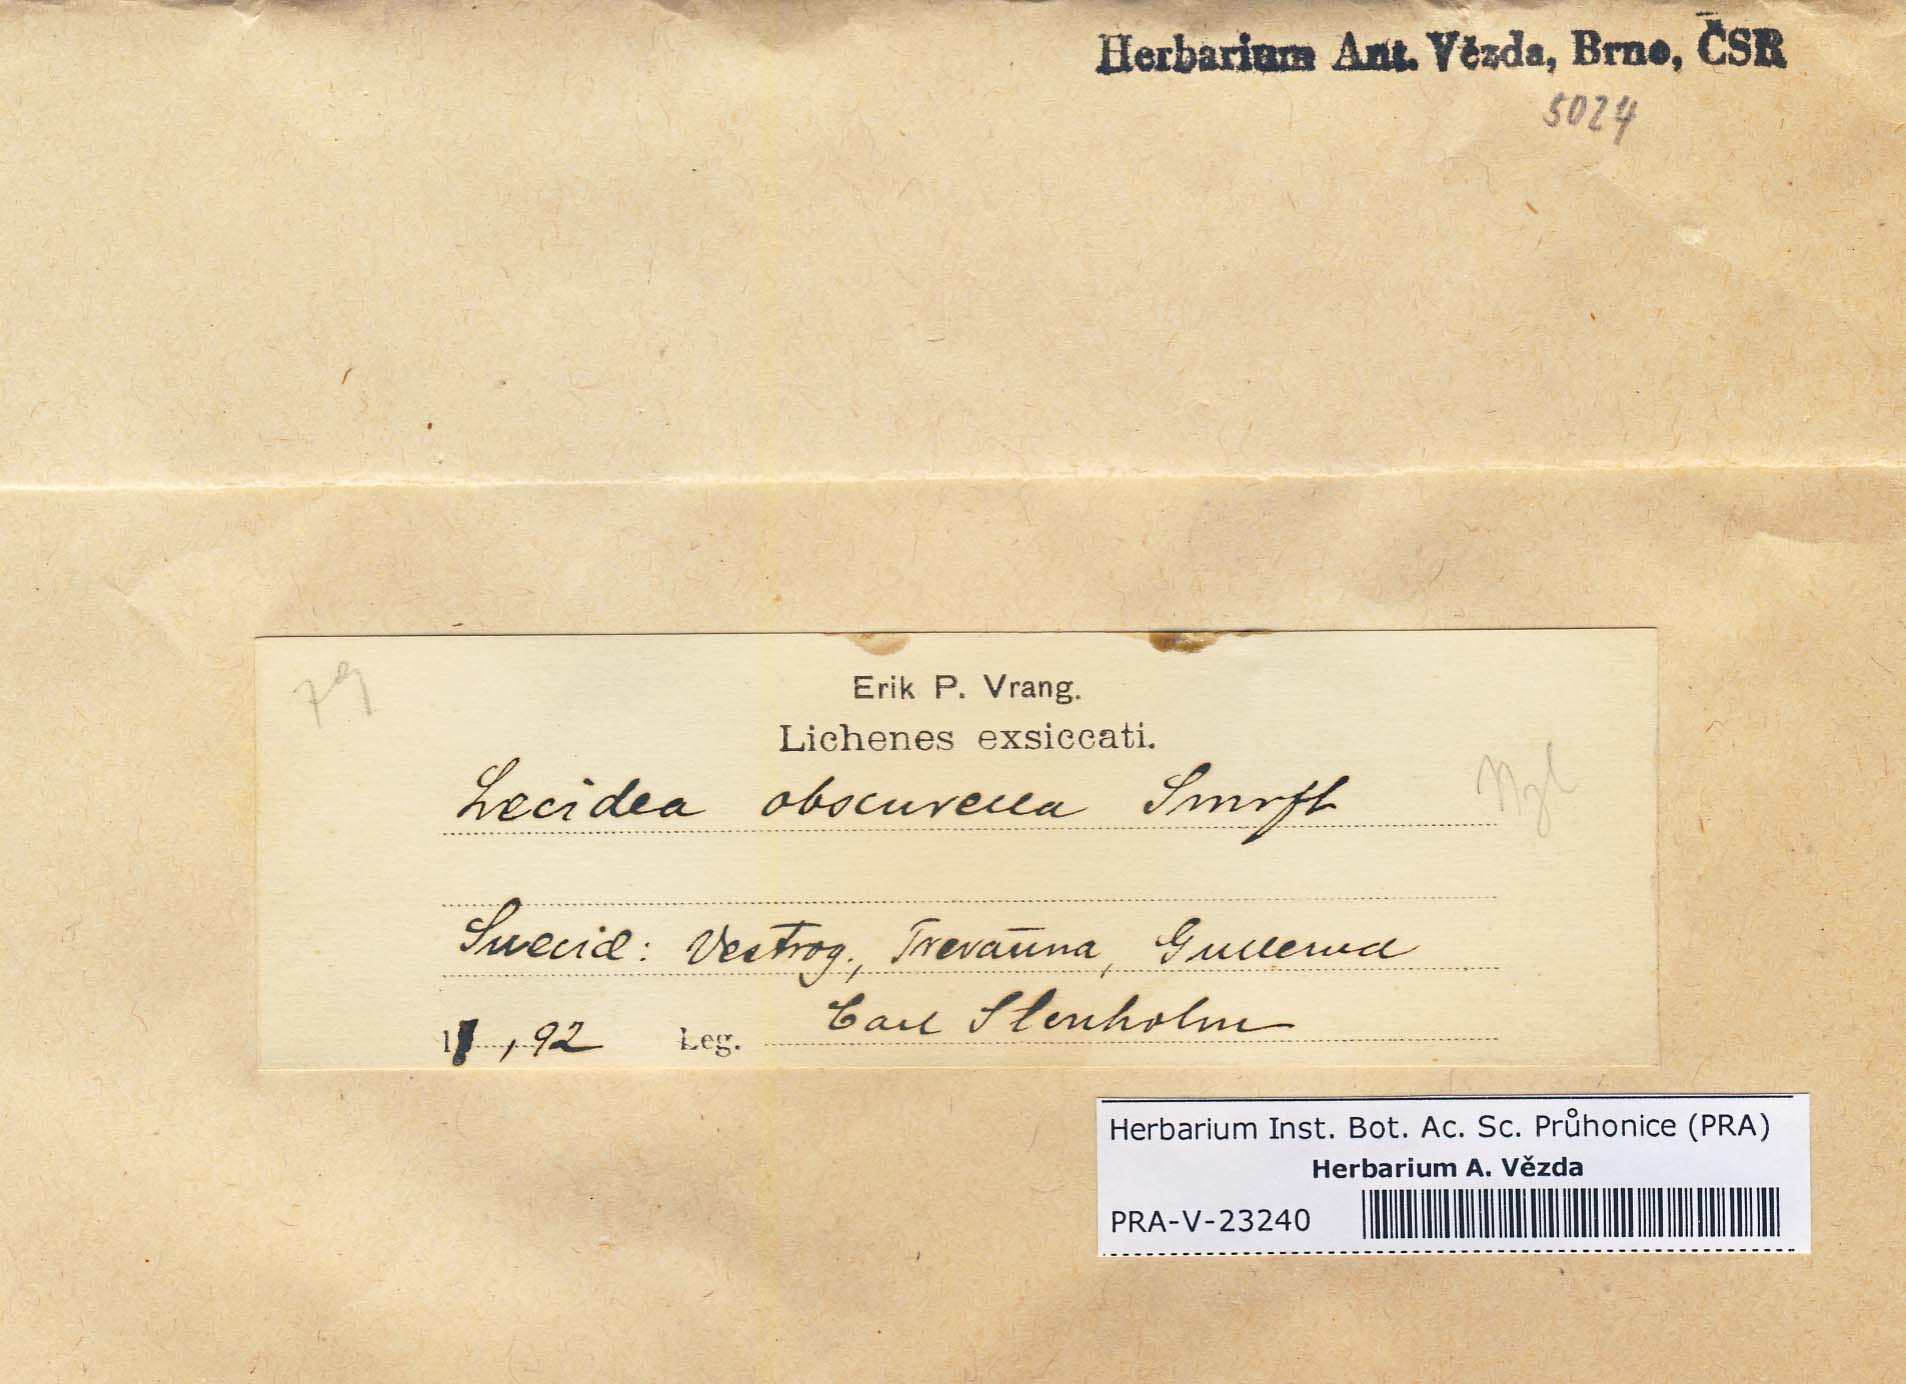 Herbarium Ant. Vězda, Brno, ČSR
5024
Erik P. Vrang.
Lichenes exsiccati.
Lecidea obscurella Smrft
Sueciæ: Vestrog., Trevattna, Gullerud
, 92 Leg. Carl Stenholm
Herbarium Inst. Bot. Ac. Sc. Průhonice (PRA)
Herbarium A. Vězda
PRA-V-23240